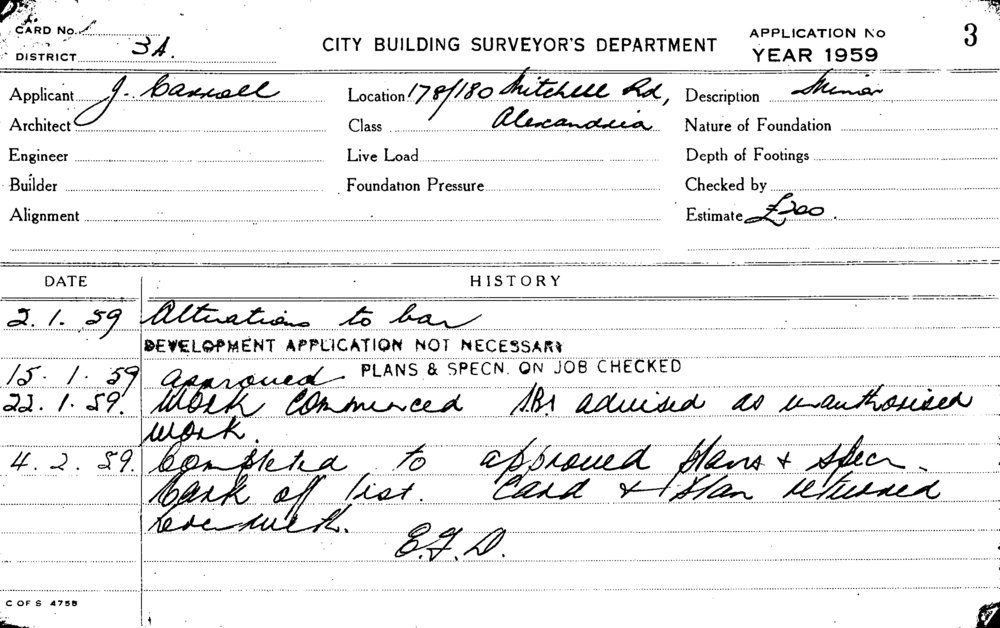 CARD No.
DISTRICT 3A.
CITY BUILDING SURVEYOR'S DEPARTMENT
APPLICATION No
YEAR 1959
3
Applicant J. Carroll
Location 178/180 Mitchell Rd,
Description Minor
Architect
Class Alexandria
Nature of Foundation
Engineer
Live Load
Depth of Footings
Builder
Foundation Pressure
Checked by
Alignment
Estimate £200.
DATE HISTORY
2.1.59 Alterations to bar
DEVELOPMENT APPLICATION NOT NECESSARY
15.1.59 approved PLANS & SPECN. ON JOB CHECKED
22.1.59. Work commenced advised as unauthorised
work.
4.2.59. Completed to approved plans & specn.
off list. Card & Plan returned
E.F.D.
C OF S 4758